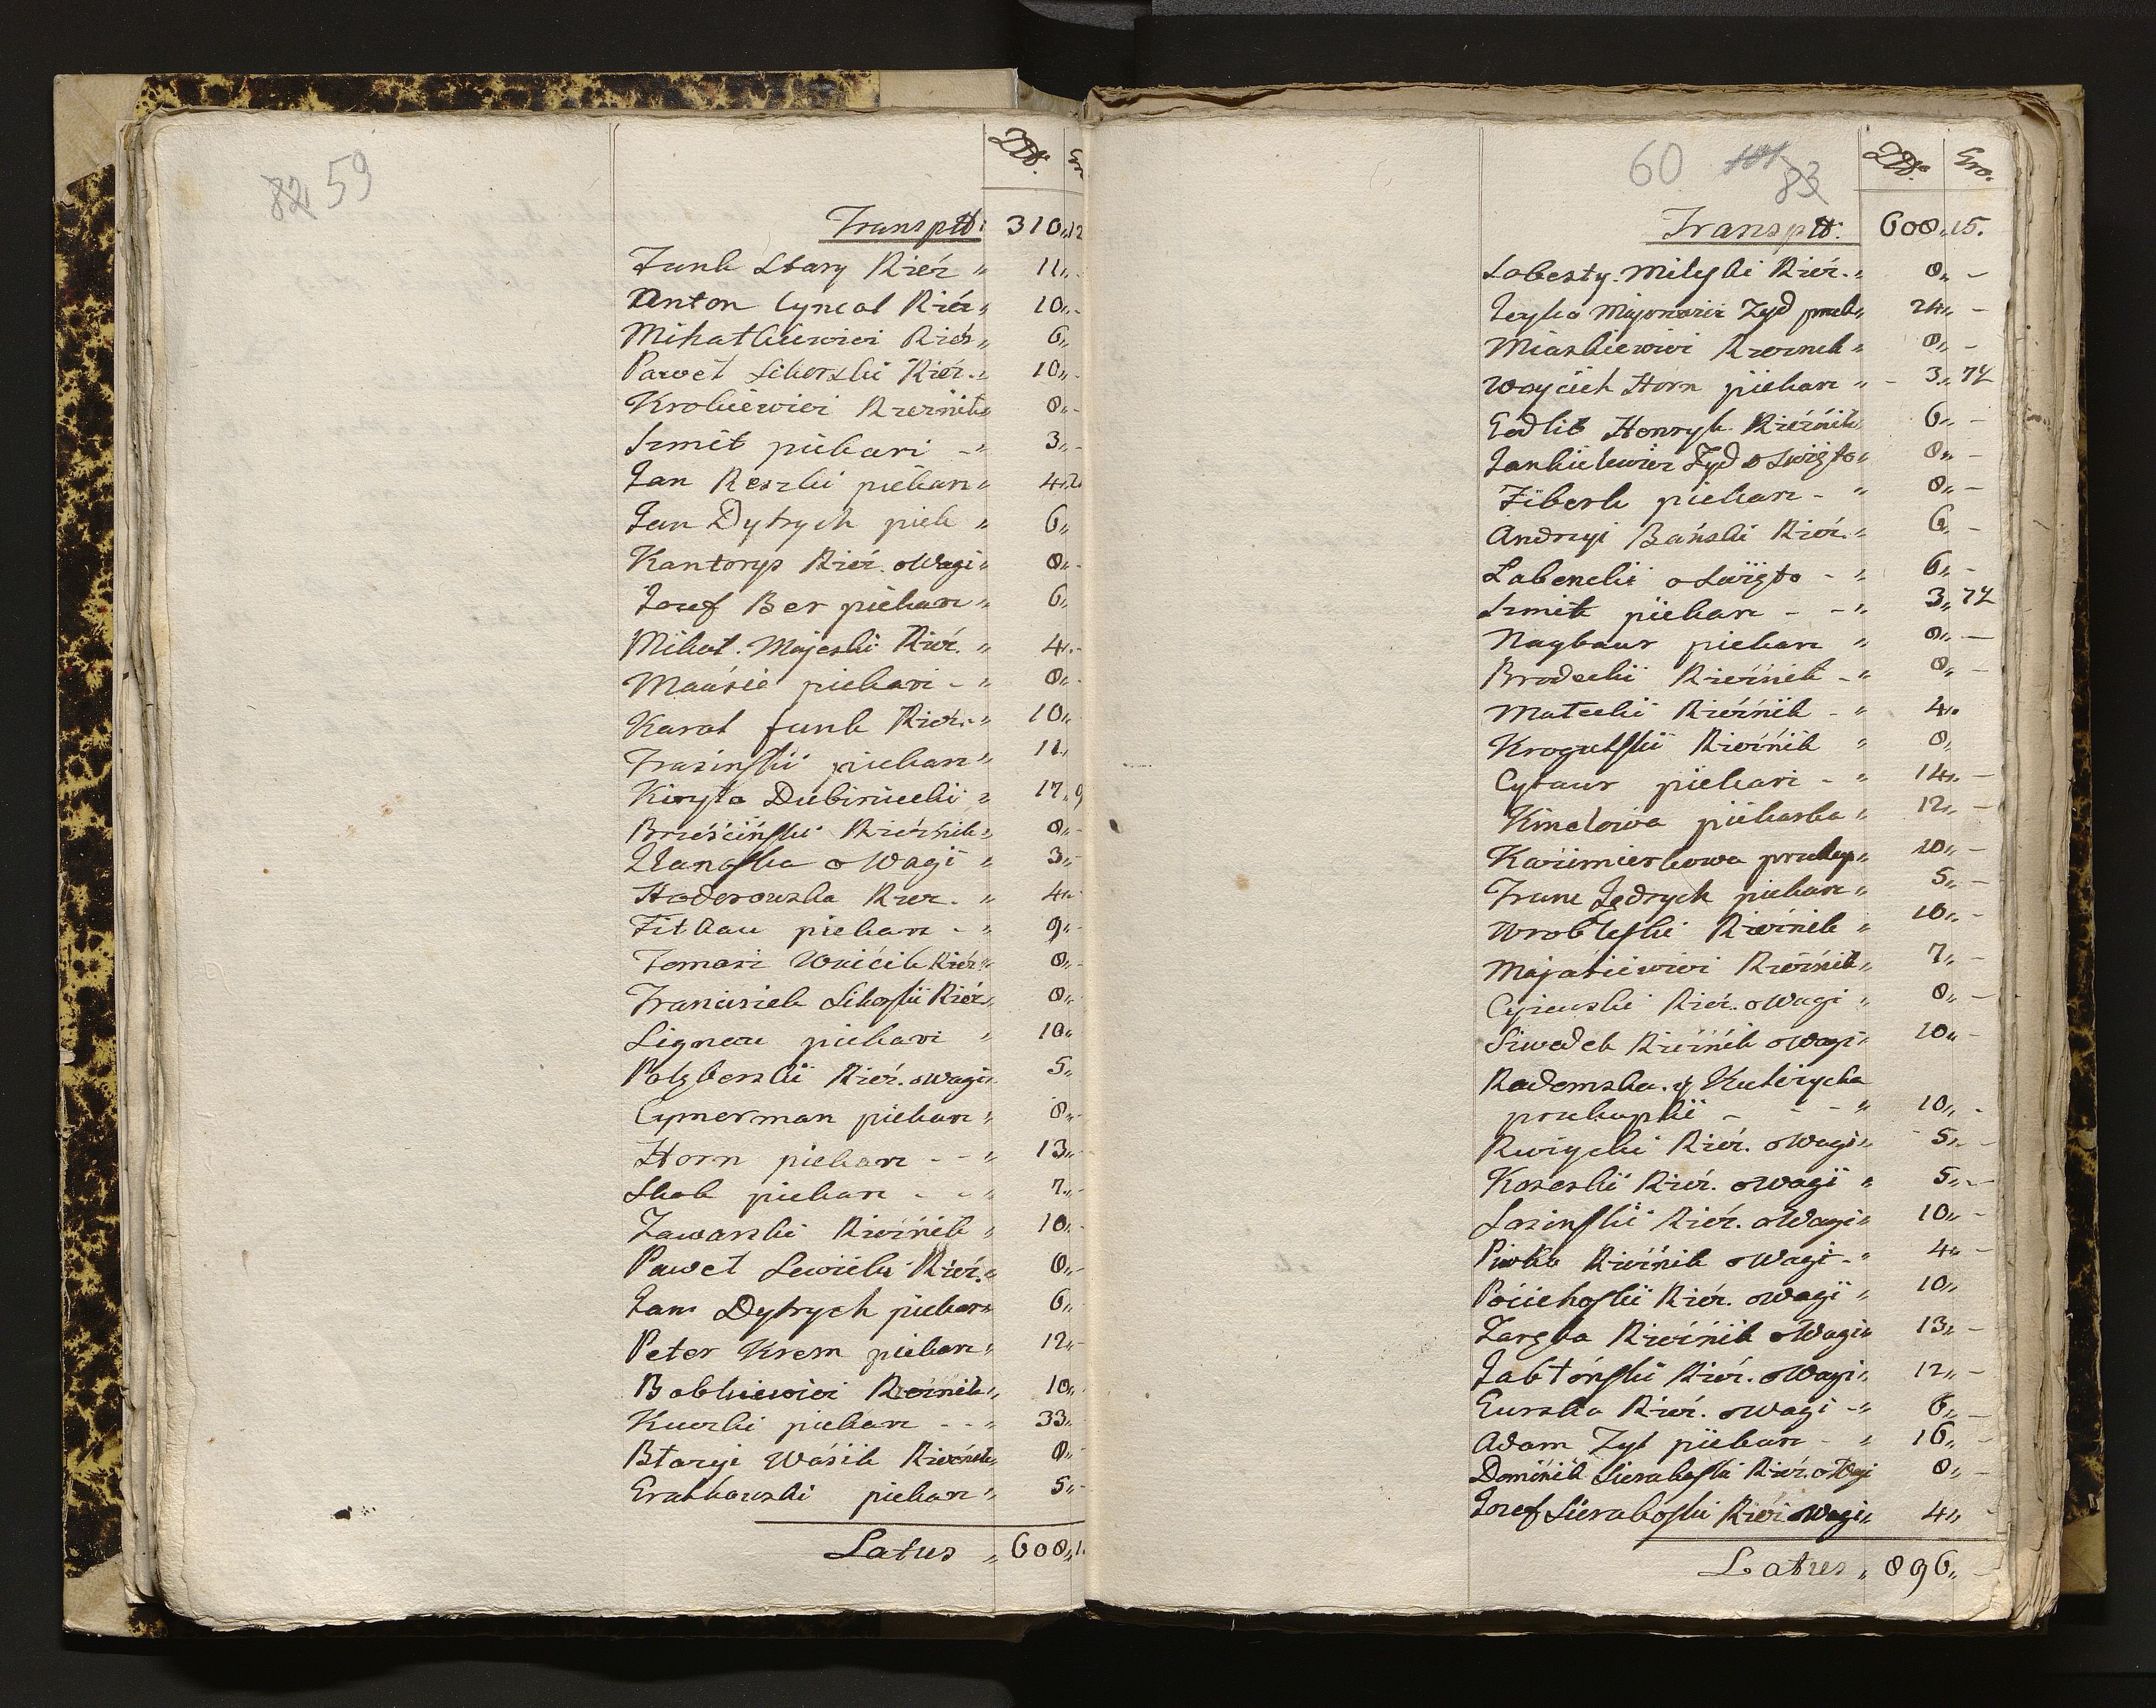 82 59
Złł. Gro
Transptt: 310,,12
Funk Stary Rzeź " 11,, -
Anton Cyncal Rzeź " 10,, -
Mihałkiewicz Rzeź " 6,,
Paweł Sikorski Rzeź. " 10,, -
Krokiewicz Rzeźnik " 8,, -
Szmit piekarz - " 3,, -
Jan Reszki piekarz " 4,,
Jan Dytrych piek " 6,,
Kantorys Rzeź. o Wagi " 8,, -
Jozef Ber piekarz " 6,,
Mikoł. Majeski Rzeź. " 4,, -
piekarz - " 8,, -
Karol funk Rzeź. " 10,,
Frasinski piekarz " 11,,
Kiryła " 17,, 9
Brześcinski Rzeźnik " 8,, -
o Wagi " 3,, -
Hoderowska Rzez. " 4,, -
Fitkau piekarz - " 9,, -
Tomasz Woicik Rzeź " 8,, -
Franciszek Sikorski Rzeź " 8,, -
Lignau piekarz " 10,,
Rzeź. o wagi " 5,,
Cymerman piekarz " 8,, -
Horn piekarz - - " 13,,
Skok piekarz - - " 7,, -
Zawarski Rzeźnik " 10,, -
Paweł Rzeź. " 8,, -
Jan Dytrych piekarz 6,, -
Peter Krem piekarz " 12,, -
Bobkiewicz Rzeźnik " 10,,
piekarz - - " 33,,
Błazyi Wasik Rzeźnik " 8,, -
Gratkowski piekarz " 5,, -
Latus " 608,,1
60 83
Złł. Gro.
Transptt. 608,,15.
Rzeź. " 8,, -
Żyd przek " 24,, -
Miaskiewicz Rzeznik " 8,, -
Woyciech Horn piekarz " - 3,, 7½
Godlib Henryk Rzeźnik " 6,, -
Jankielewicz Żyd o Swięto " 8,, -
Ziberk piekarz - " 8,, -
Andrzyi Bański Rzeź. " 6,, -
Labencki o Swięto - " 6,, -
Szmit piekarz - - " 3,, 7½
Naybaur piekarz " 8,, -
Brodecki Rzeźnik - " 8,, -
Matecki Rzeźnik - " 4,,
Krogulski Rzeźnik " 8,,
Cytaur piekarz - " 14,, -
Kinelowa piekarka " 12,, -
Kazimierkowa przekup " 20,, -
Franc Jędrych piekarz " 5,, -
Wrobleski Rzeźnik " 10,, -
Majasiewicz Rzeźnik " 7,, -
Rzeź. o Wagi " 8,, -
Szwedek Rzeźnik o Wagi " 20,, -
Radomska. y
przekupki - - - " 10,, -
Rzeź. o Wagi " 5,, -
Koseski Rzeź. o Wagi " 5,, -
Losinski Rzeź. o Wagi " 10,, -
Piotko Rzeźnik o Wagi - " 4,, -
Pociehoski Rzeź. o Wagi " 10,,
Zaręba Rzeźnik o Wagi " 13,, -
Jabłoński Rzeź. o Wagi " 12,, -
Gurska Rzeź. o Wagi - " 6,, -
Adam Zyl piekarz - " 16,, -
Dominik Sierakoski Rzeź. o Wagi 8,, -
Jozef Sierakoski Rzeź o Wagi " 4,, -
Latus " 896,, -